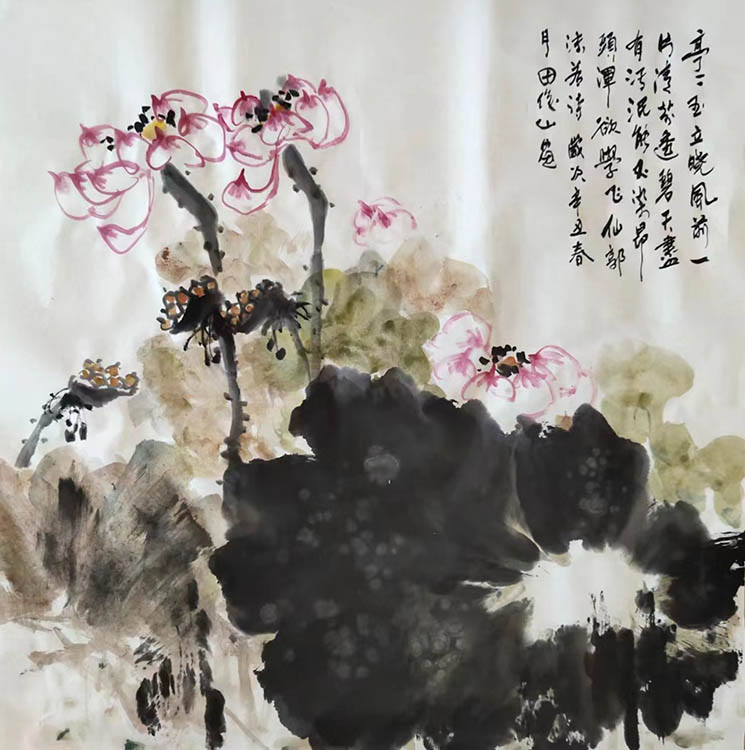 亭亭玉立晓風前一
片清芬透碧天盡
有污泥能不染昂
頭渾欲學飞仙郭
沫若诗 歲次辛丑春
月田俊山画